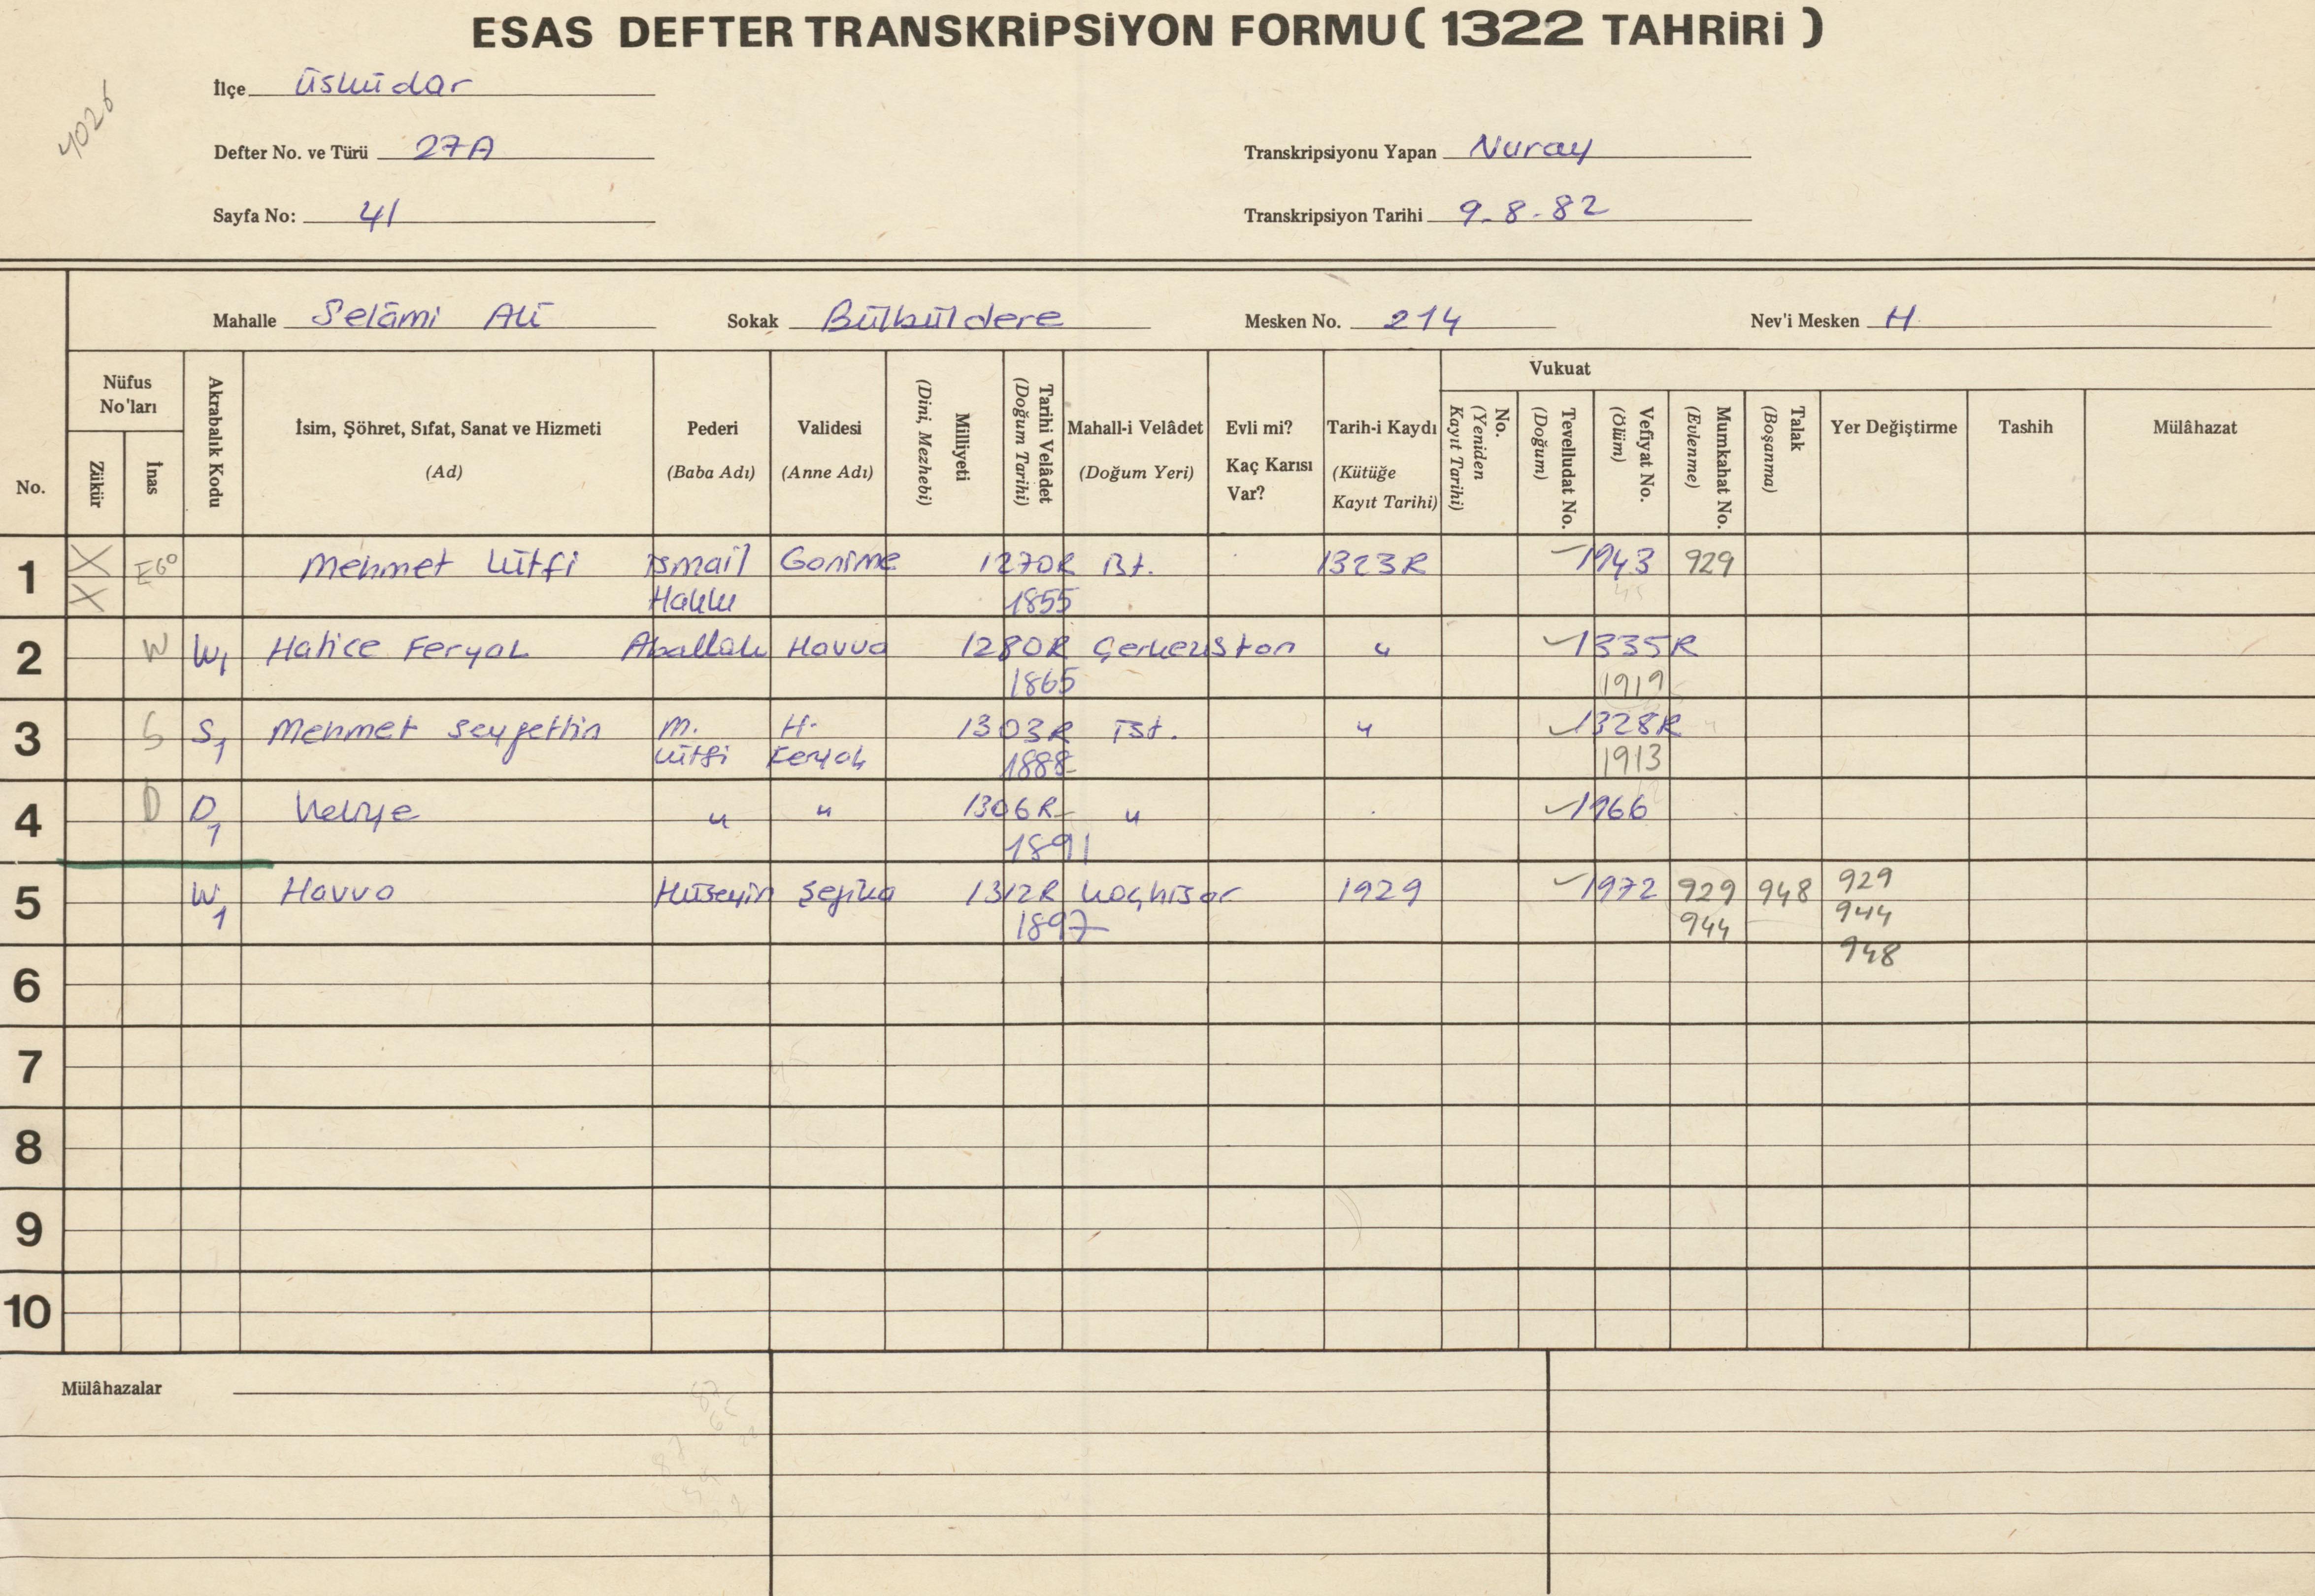 ESAS DEFTER TRANSKRİPSİYON FORMU ( 1322 TAHRİRİ )
4026
İlçe Üsküdar
Defter No. ve Türü 27A
Transkripsiyonu Yapan Nuray
Sayfa No: 41
Transkripsiyon Tarihi 9.8.82
Mahalle Selâmi Ali Sokak Bülbüldere Mesken No. 214 Nev'i Mesken H
No.
Nüfus No'ları
Zükür
İnas
Akrabalık Kodu
İsim, Şöhret, Sıfat, Sanat ve Hizmeti
(Ad)
Pederi
(Baba Adı)
Validesi
(Anne Adı)
Milliyeti
(Dini, Mezhebi)
Tarihi Velâdet
(Doğum Tarihi)
Mahall-i Velâdet
(Doğum Yeri)
Evli mi?
Kaç Karısı
Var?
Tarih-i Kaydı
(Kütüğe
Kayıt Tarihi)
Vukuat
No.
(Yeniden
Kayıt Tarihi)
Tevelludat No.
(Doğum)
Vefiyat No.
(Ölüm)
Mumkahat No.
(Evlenme)
Talak
(Boşanma)
Yer Değiştirme
Tashih
Mülâhazat
1 X EGO Mehmet Lütfi İsmail Ganime 1270R İst. 1323R 1943 929
X Hakkı 1855
2 W W1 Hatice Feryal Abdullah Havva 1280R Çerkezistan " 1335R
1865 1919
3 S S1 Mehmet Seyfettin M. H. 1303R İst. " 1328R
Lütfi Feryal 1888 1913
4 D D1 " " 1306R " 1966
1891
5 W1 Havva Hüseyin Şefika 1312R Koçhisar 1929 1972 929 948 929
1897 944 944
948
6
7
8
9
10
Mülâhazalar